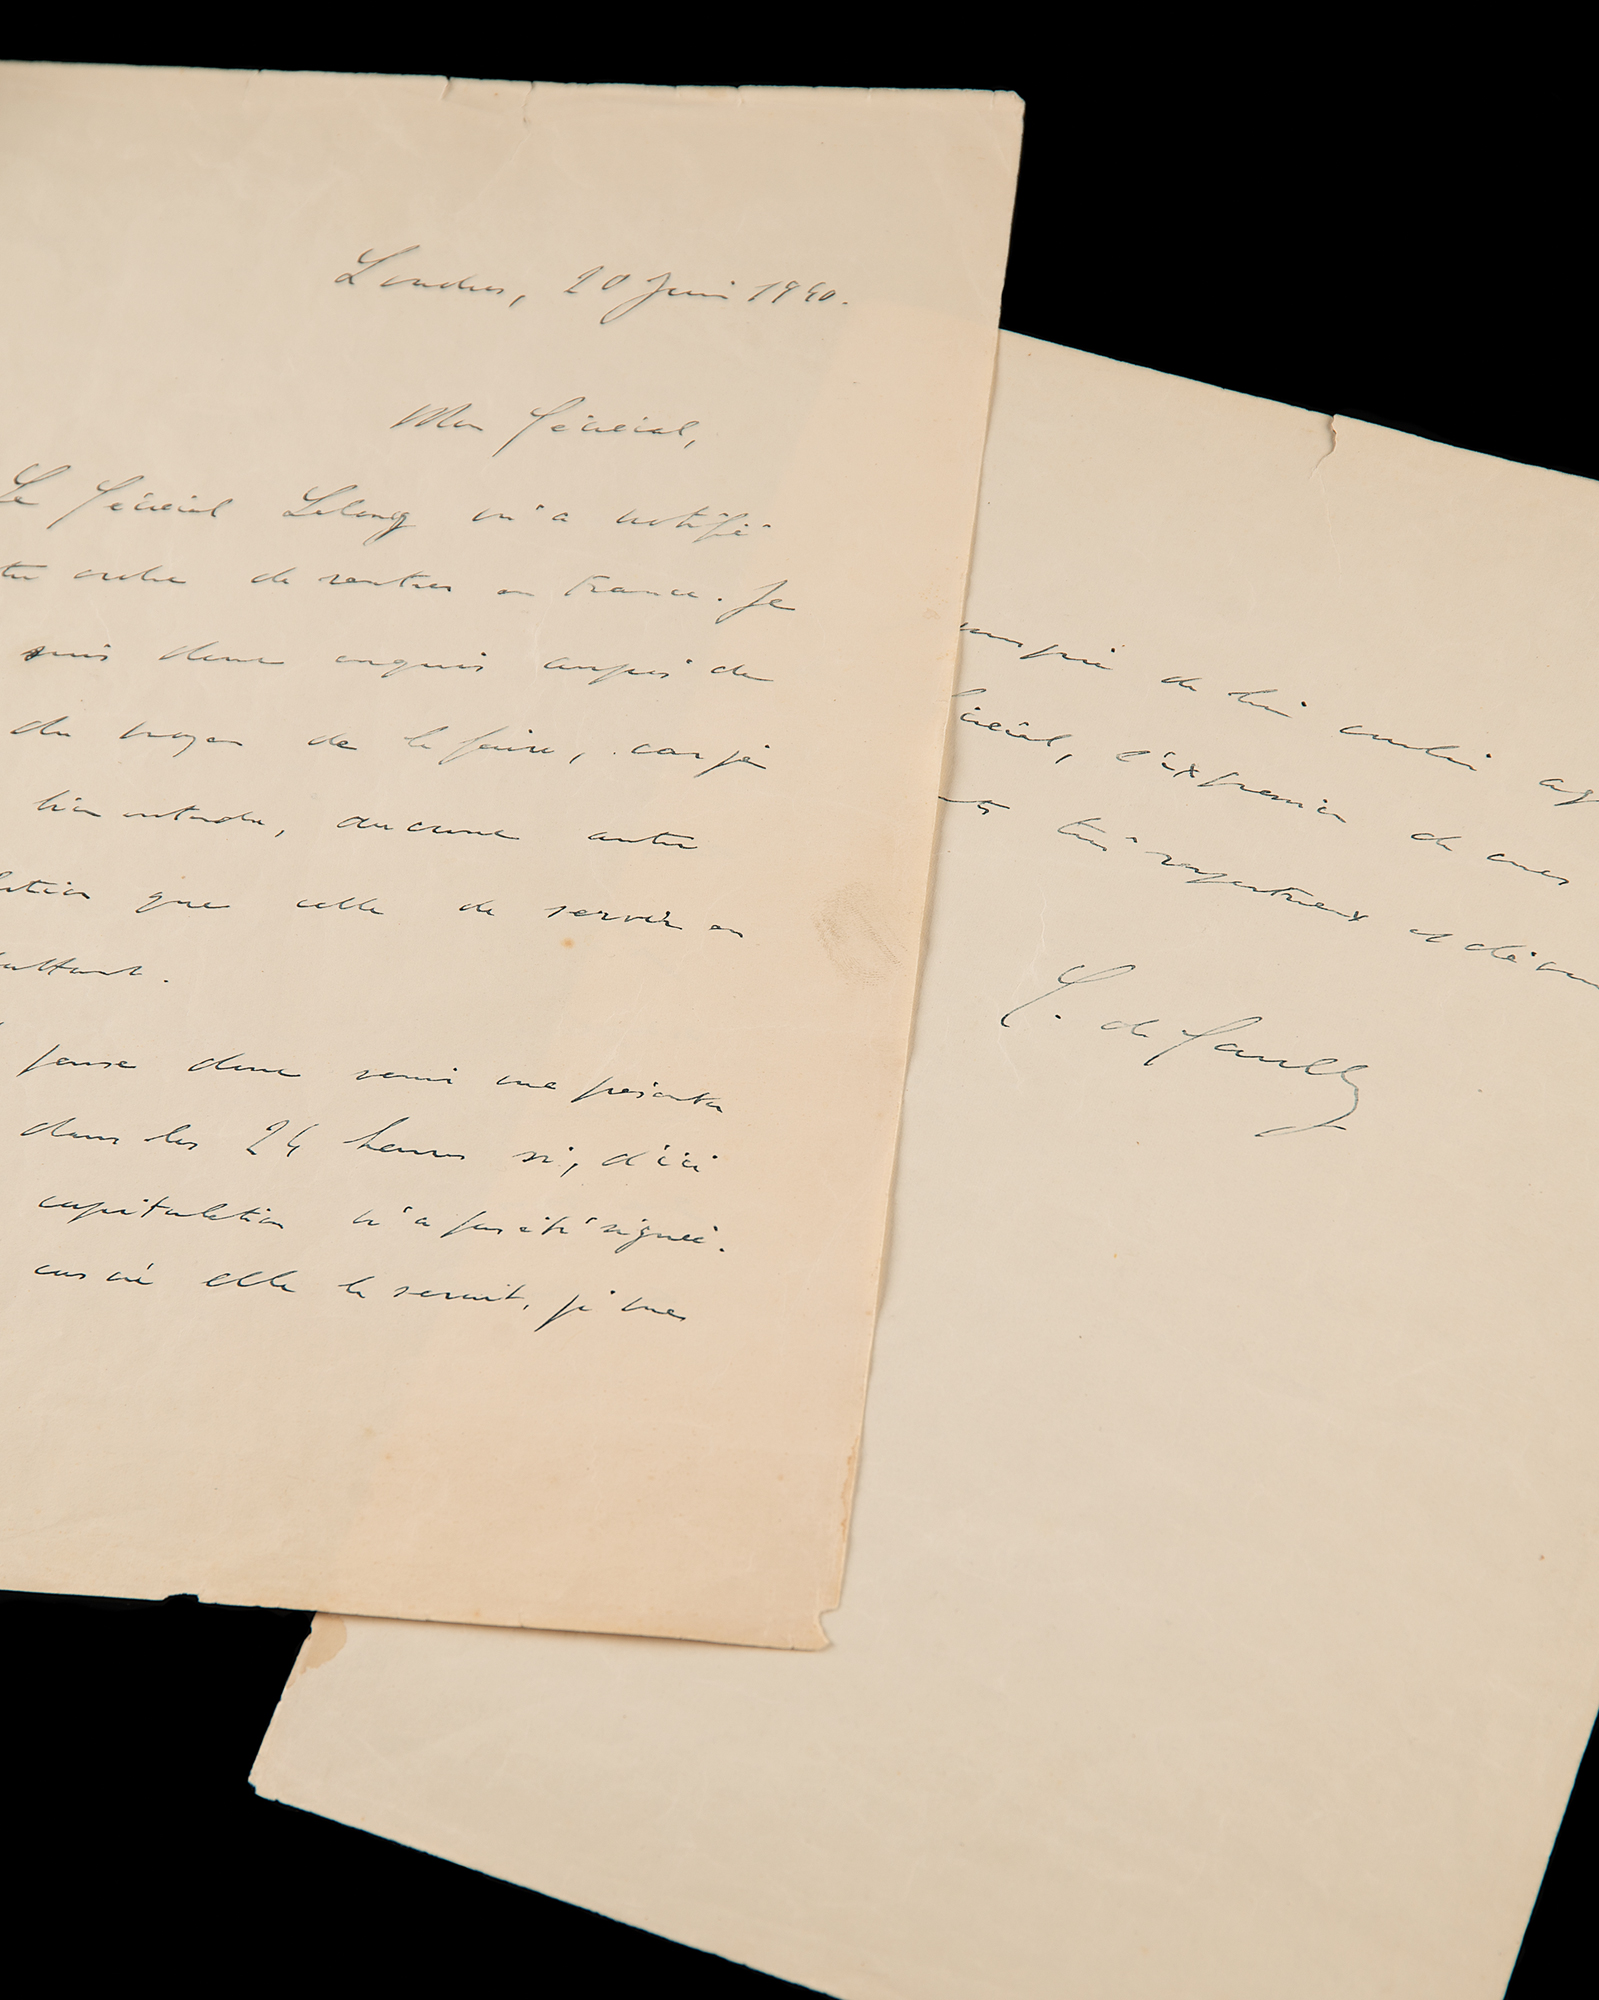 Londres, 20 Juin 1940.
Mon Général,
Le Général Lelong m'a notifié
ordre de rentrer en France. Je
suis donc enquis auprès de
du moyen de le faire, car je
bien entendu, aucune autre
lution que celle de servir en
battant.
pense donc venir me présenter
dans les 24 heures si, d'ici
capitulation n'a pas été signée.
cas où elle le serait, je me
prie de bien vouloir ag
néral, l'expression de mes
très respectueux et dévou
C. de Gaulle